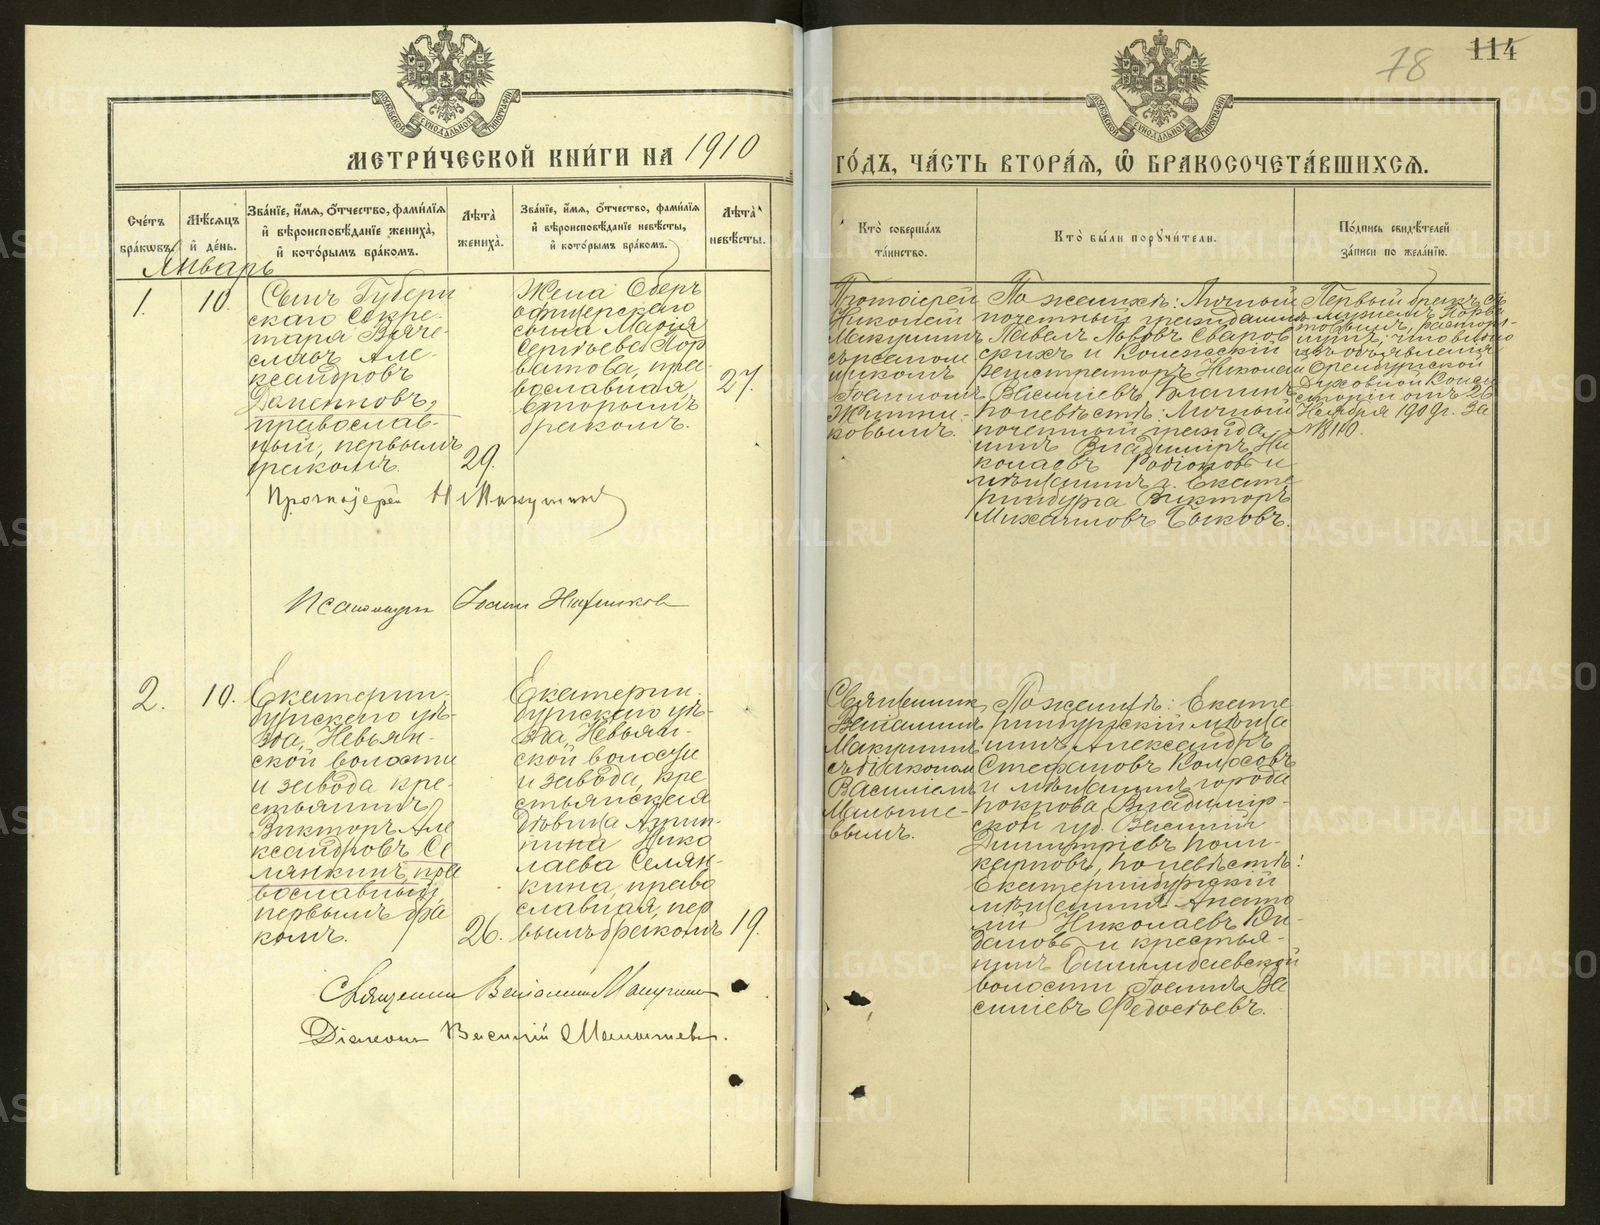 78 114
МОСКОВСКОЙ СѴНОДАЛЬНОЙ ТИПОГРАФІИ
МОСКОВСКОЙ СѴНОДАЛЬНОЙ ТИПОГРАФІИ
МЕТРИ́ЧЕСКОЙ КНИ́ГИ НА 1910
ГО́ДЪ, ЧА́СТЬ ВТОРА́Я, Ѽ БРАКОСОЧЕТА́ВШИХСЯ.
Сче́тъ бра́кѡвъ.
Мѣ́сяцъ и́ де́нь.
Зва́нїе, и́мя, ѻ́тчество, фами́лїя и́ вѣроисповѣ́данїе жениха̀, и́ кото́рымъ бра́комъ.
Лѣ́та жениха̀.
Зва́нїе, и́мя, ѻ́тчество, фами́лїя и́ вѣроисповѣ́данїе невѣ́сты, и́ кото́рымъ бра́комъ.
Лѣ́та невѣ́сты.
Кто̀ соверша́лъ та́инство.
Кто̀ бы́ли порꙋчи́тели.
По́дпись свидѣ́телей за́писи по жела́нїю.
Январь
1.
10.
Сынъ Губерн
скаго Секре-
таря Вяче-
славъ Але-
ксандровъ
православ-
ный, первымъ
бракомъ.
29.
Жена Оберъ
офицерскаго
сына Марія
Сергѣева Хор
ватова, пра-
вославная
вторымъ
бракомъ.
27.
Протоіерей
Николай
Макушинъ
съ псалом
щикомъ
Іоанномъ
Житни-
ковымъ.
По женихѣ: Личный
почетный гражданинъ
Павелъ Львовъ
и Колежскій
регистраторъ Николай
Васильевъ
по невѣстѣ: Личный
почетный гражда
нинъ Владиміръ Ни
колаевъ Родіоновъ и
мѣщанинъ г. Екате
ринбурга Викторъ
Михаиловъ Быковъ.
Первый бракъ съ
мужемъ Хорва
товымъ, расторг-
нутъ, что видно
изъ объявленія
Оренбургской
Духовной Конси
сторіи отъ 26
Ноября 1909 г. за
Протоіерей Н Макушинъ
Псаломщикъ Іоаннъ Житниковъ
2.
10.
Екатерин-
бургскаго уѣ-
зда, Невьян-
ской волости
и завода кре-
стьянинъ
Викторъ Але
ксандровъ Се
лянкинъ, пра
вославный,
первымъ бра
комъ.
26.
Екатерин-
бургскаго уѣ-
зда, Невьян-
ской волости
и завода, кре
стьянская
дѣвица Агрип
пина Нико
лаева Селян-
кина, право
славная, пер
вымъ бракомъ
19.
Священникъ
Веніаминъ
Макушинъ
съ діакономъ
Василіемъ
Малыше-
вымъ.
По женихѣ: Екате
ринбургскій мѣща
нинъ Александръ
Стефановъ Колосовъ
и мѣщанинъ города
Покрова Владимір-
ской губ. Василій
Димитріевъ Поли-
карповъ, по невѣстѣ:
Екатеринбургскій
мѣщанинъ Анато
лій Николаевъ Юн-
дановъ и крестья-
нинъ Билимбаевской
волости Іоаннъ Ва
силіевъ Федосѣевъ.
Священникъ Веніаминъ Макушинъ
Діаконъ Василій Малышевъ.
METRIKI.GASO-URAL.RU